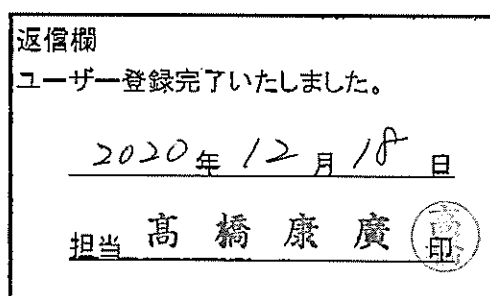 返信欄
ユーザー登録完了いたしました。
2020年12月18日
担当 髙橋康廣 印
髙橋